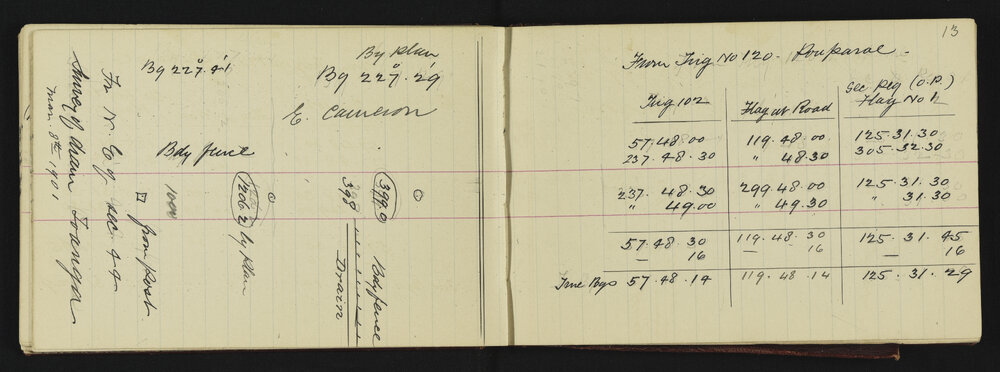 Survey of drain Toanga
Mar 8th 1901
Fr N. E of Sec. 44
from post
Bg 227°.41'
By plan
Bg 227°.29'
E. Cameron
Bdy fence
1000
by plan
399.0
398
Bdy fence
Drain
13
From Trig No 120. Pouparae.
Trig 102
Flag at Road
Sec Peg (O.P.)
Flag No 1
57.48.00 119.48.00 125.31.30
237.48.30 " 48.30 305.32.30
237.48.30 299.48.00 125.31.30
" 49.00 " 49.30 " 31.30
57.48.30 119.48.30 125.31.45
— 16 — 16 — 16
True Bgs 57.48.14 119.48.14 125.31.29